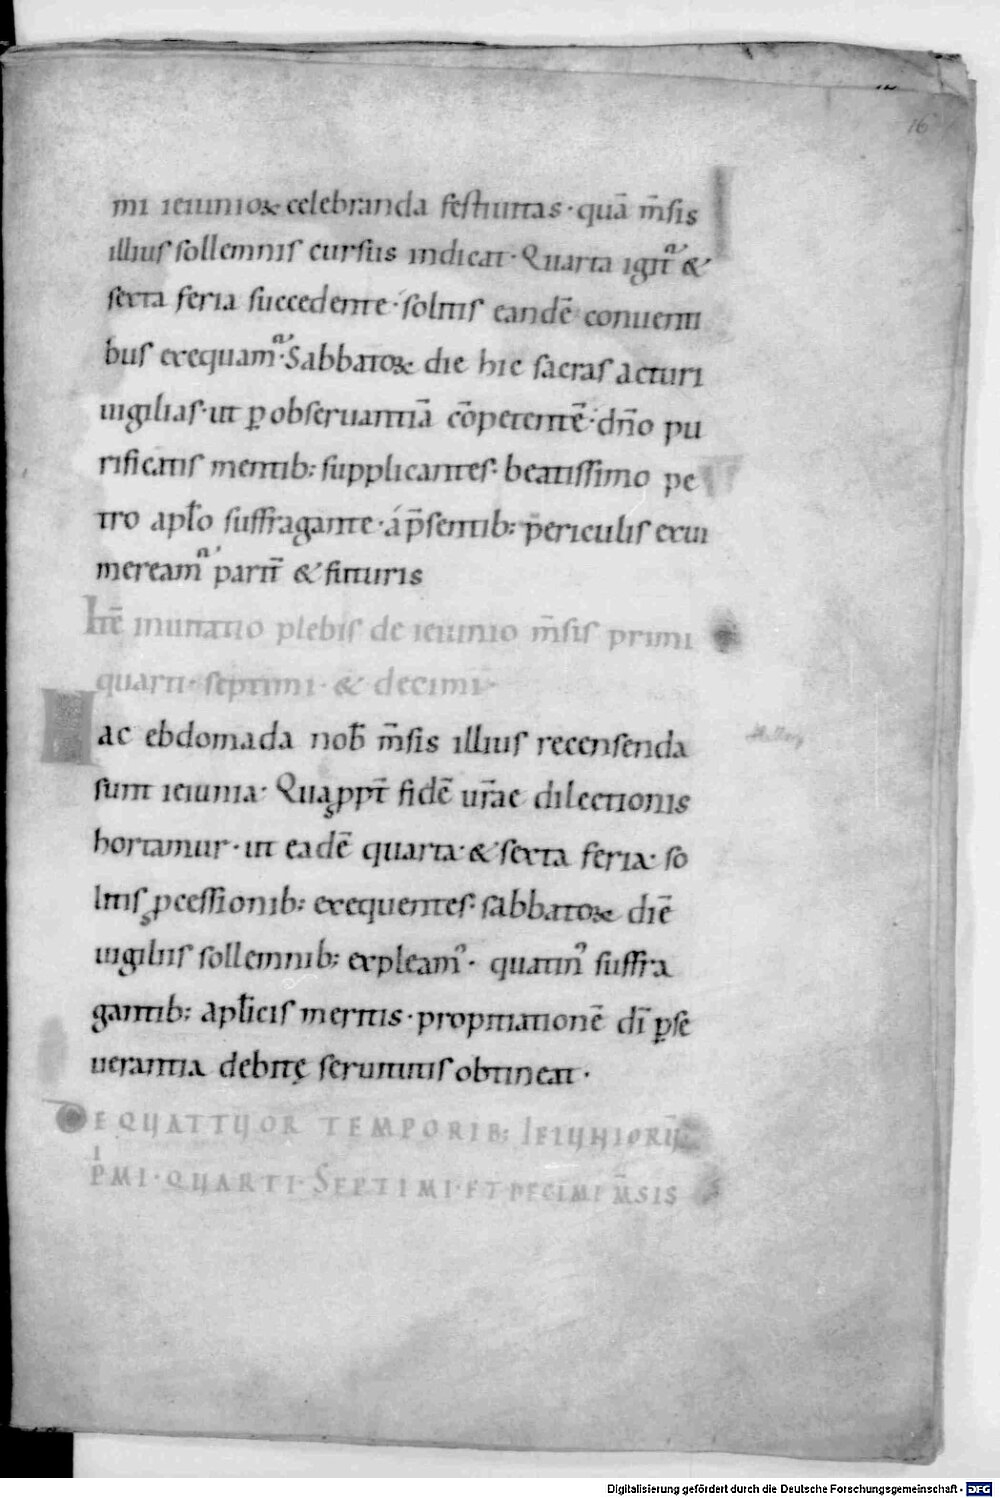 16
mi ieiunio & celebranda festiuitas · quā m̄sis
illius sollemnis cursus indicat · Quarta igit᷑ &
sexta feria succedente · solitis eandē conuenti
bus exequam᷑ · Sabbato & die hic sacras acturi
uigilias · ut ꝑ obseruantiā cōpetentē · dn̄o pu
rificatis mentib: supplicantes · beatissimo pe
tro apl̄o suffragante · á p̄sentib: periculis exui
meream᷑ parit̄ & futuris
Itē inuitatio plebis de ieiunio m̄sis primi
quarti · septimi · & decimi ·
Hac ebdomada nob̄ m̄sis illius recensenda
sunt ieiunia · Quaꝓpt̄ fidē ur̄ae dilectionis
hortamur · ut eadē quarta · & sexta feria · so
litis ꝓcessionib: exequentes · sabbato & diē
uigiliis sollemnib: expleam᷑ · quatin᷒ suffra
gantib: apl̄icis meritis · propitiationē dī ꝑse
uerantia debitę seruitutis obtineat ·
DE QUATTUOR TEMPORIB: IEIUNIORŪ
PⁱMI · QUARTI · SEPTIMI · ET DECIMI M̄SIS
Digitalisierung gefördert durch die Deutsche Forschungsgemeinschaft - DFG